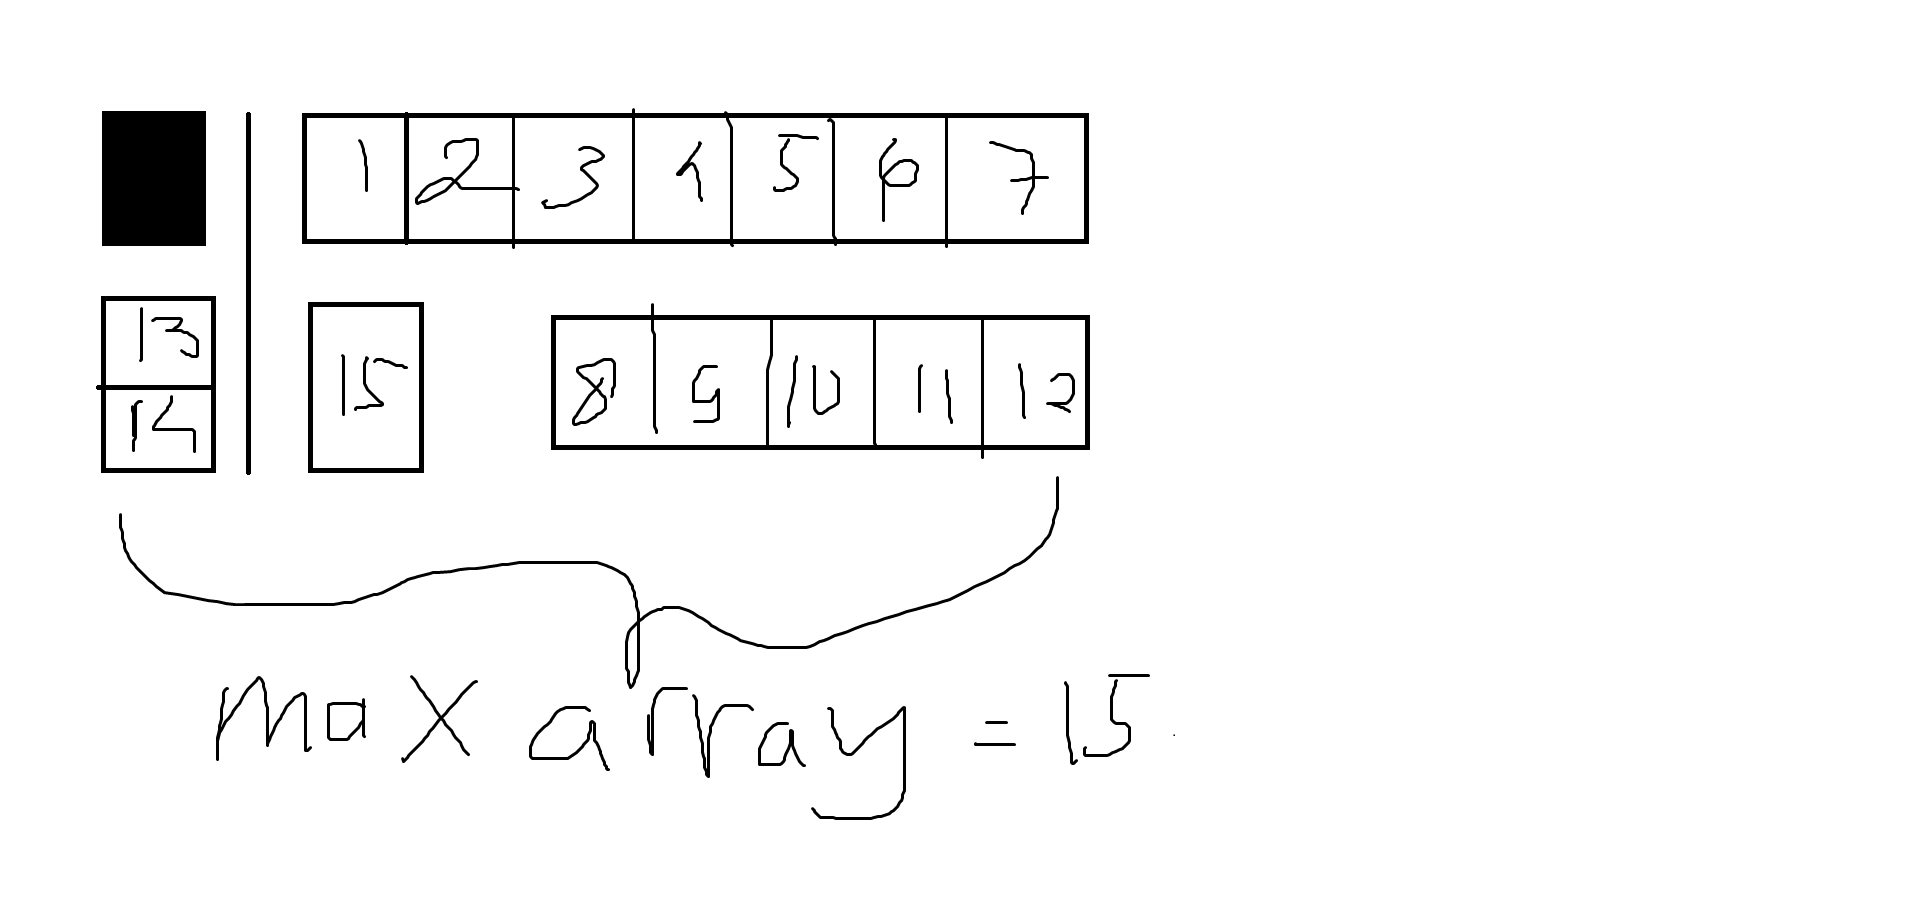 1 2 3 4 5 6 7
13
14
15
8 9 10 11 12
max array = 15